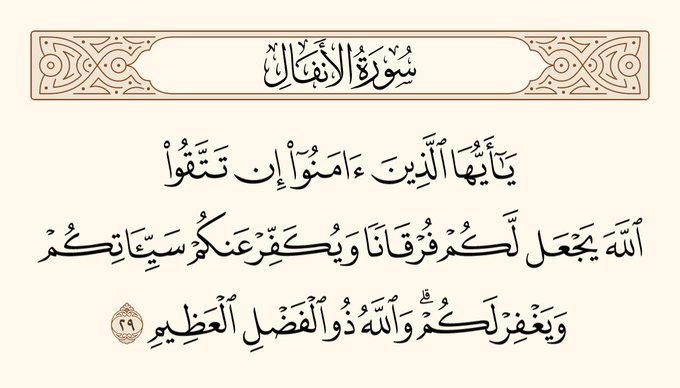 سُورَةُ الأَنفَالِ
يَـٰٓأَيُّهَا ٱلَّذِينَ ءَامَنُوٓا۟ إِن تَتَّقُوا۟
ٱللَّهَ يَجْعَل لَّكُمْ فُرْقَانًا وَيُكَفِّرْ عَنكُمْ سَيِّـَٔاتِكُمْ
وَيَغْفِرْ لَكُمْ ۗ وَٱللَّهُ ذُو ٱلْفَضْلِ ٱلْعَظِيمِ ٢٩